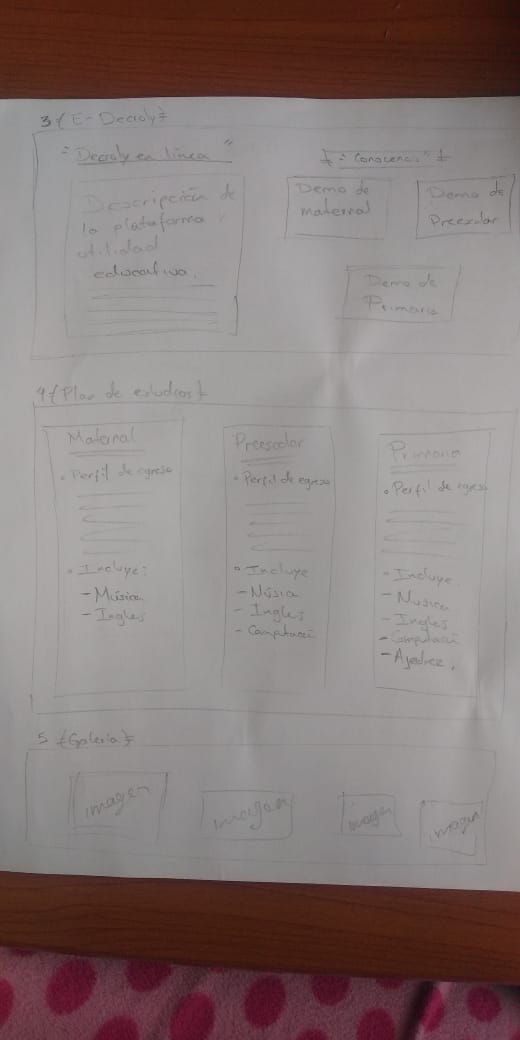 3 { E-Decroly }
"Decroly en línea"
Descripción de
la plataforma y
utilidad
educativa.
Demo de
maternal
Demo de
Preescolar
Demo de
Primaria
4 { Plan de estudios }
Maternal
• Perfil de egreso
• Incluye:
- Música
- Ingles
Preescolar
• Perfil de egreso
• Incluye
- Música
- Ingles
- Computaci
Primaria
• Perfil de egreso
• Incluye.
- Musica
- Ingles
- Computaci
- Ajedrez.
5 { Galeria }
imagen
imagen
imagen
imagen